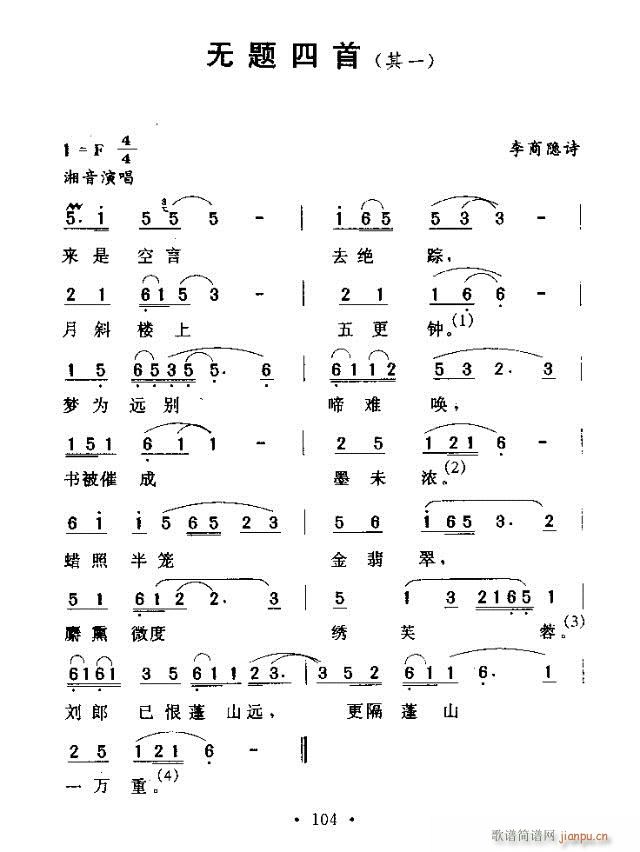 无题四首(其一)
1=F 4/4
李商隐诗
湘音演唱
5. i 5 5 5 - | i 6 5 5 3 3 - |
来是空言 去绝踪，
2 1 6 1 5 3 - | 2 1 1 6 6 - |
月斜楼上 五更钟。(1)
1 5 6 5 3 5 5. 6 | 6 1 1 2 5 3 2. 3 |
梦为远别 啼难唤，
1 5 1 6 1 1 - | 2 5 1 2 1 6 - |
书被催成 墨未浓。(2)
6 i i 5 6 5 2 3 | 5 6 i 6 5 3. 2 |
蜡照半笼 金翡翠，
5 1 6 1 2 2. 3 | 5 1 3 2 1 6 5 1 |
麝熏微度 绣芙蓉。(3)
6 1 6 1 3 5 6 1 1 2 3. | 3 5 2 6 1 1 6. 1 |
刘郎已恨蓬山远， 更隔蓬山
2 5 1 2 1 6 - ‖
一万重。(4)
• 104 •
歌谱简谱网 jianpu.cn